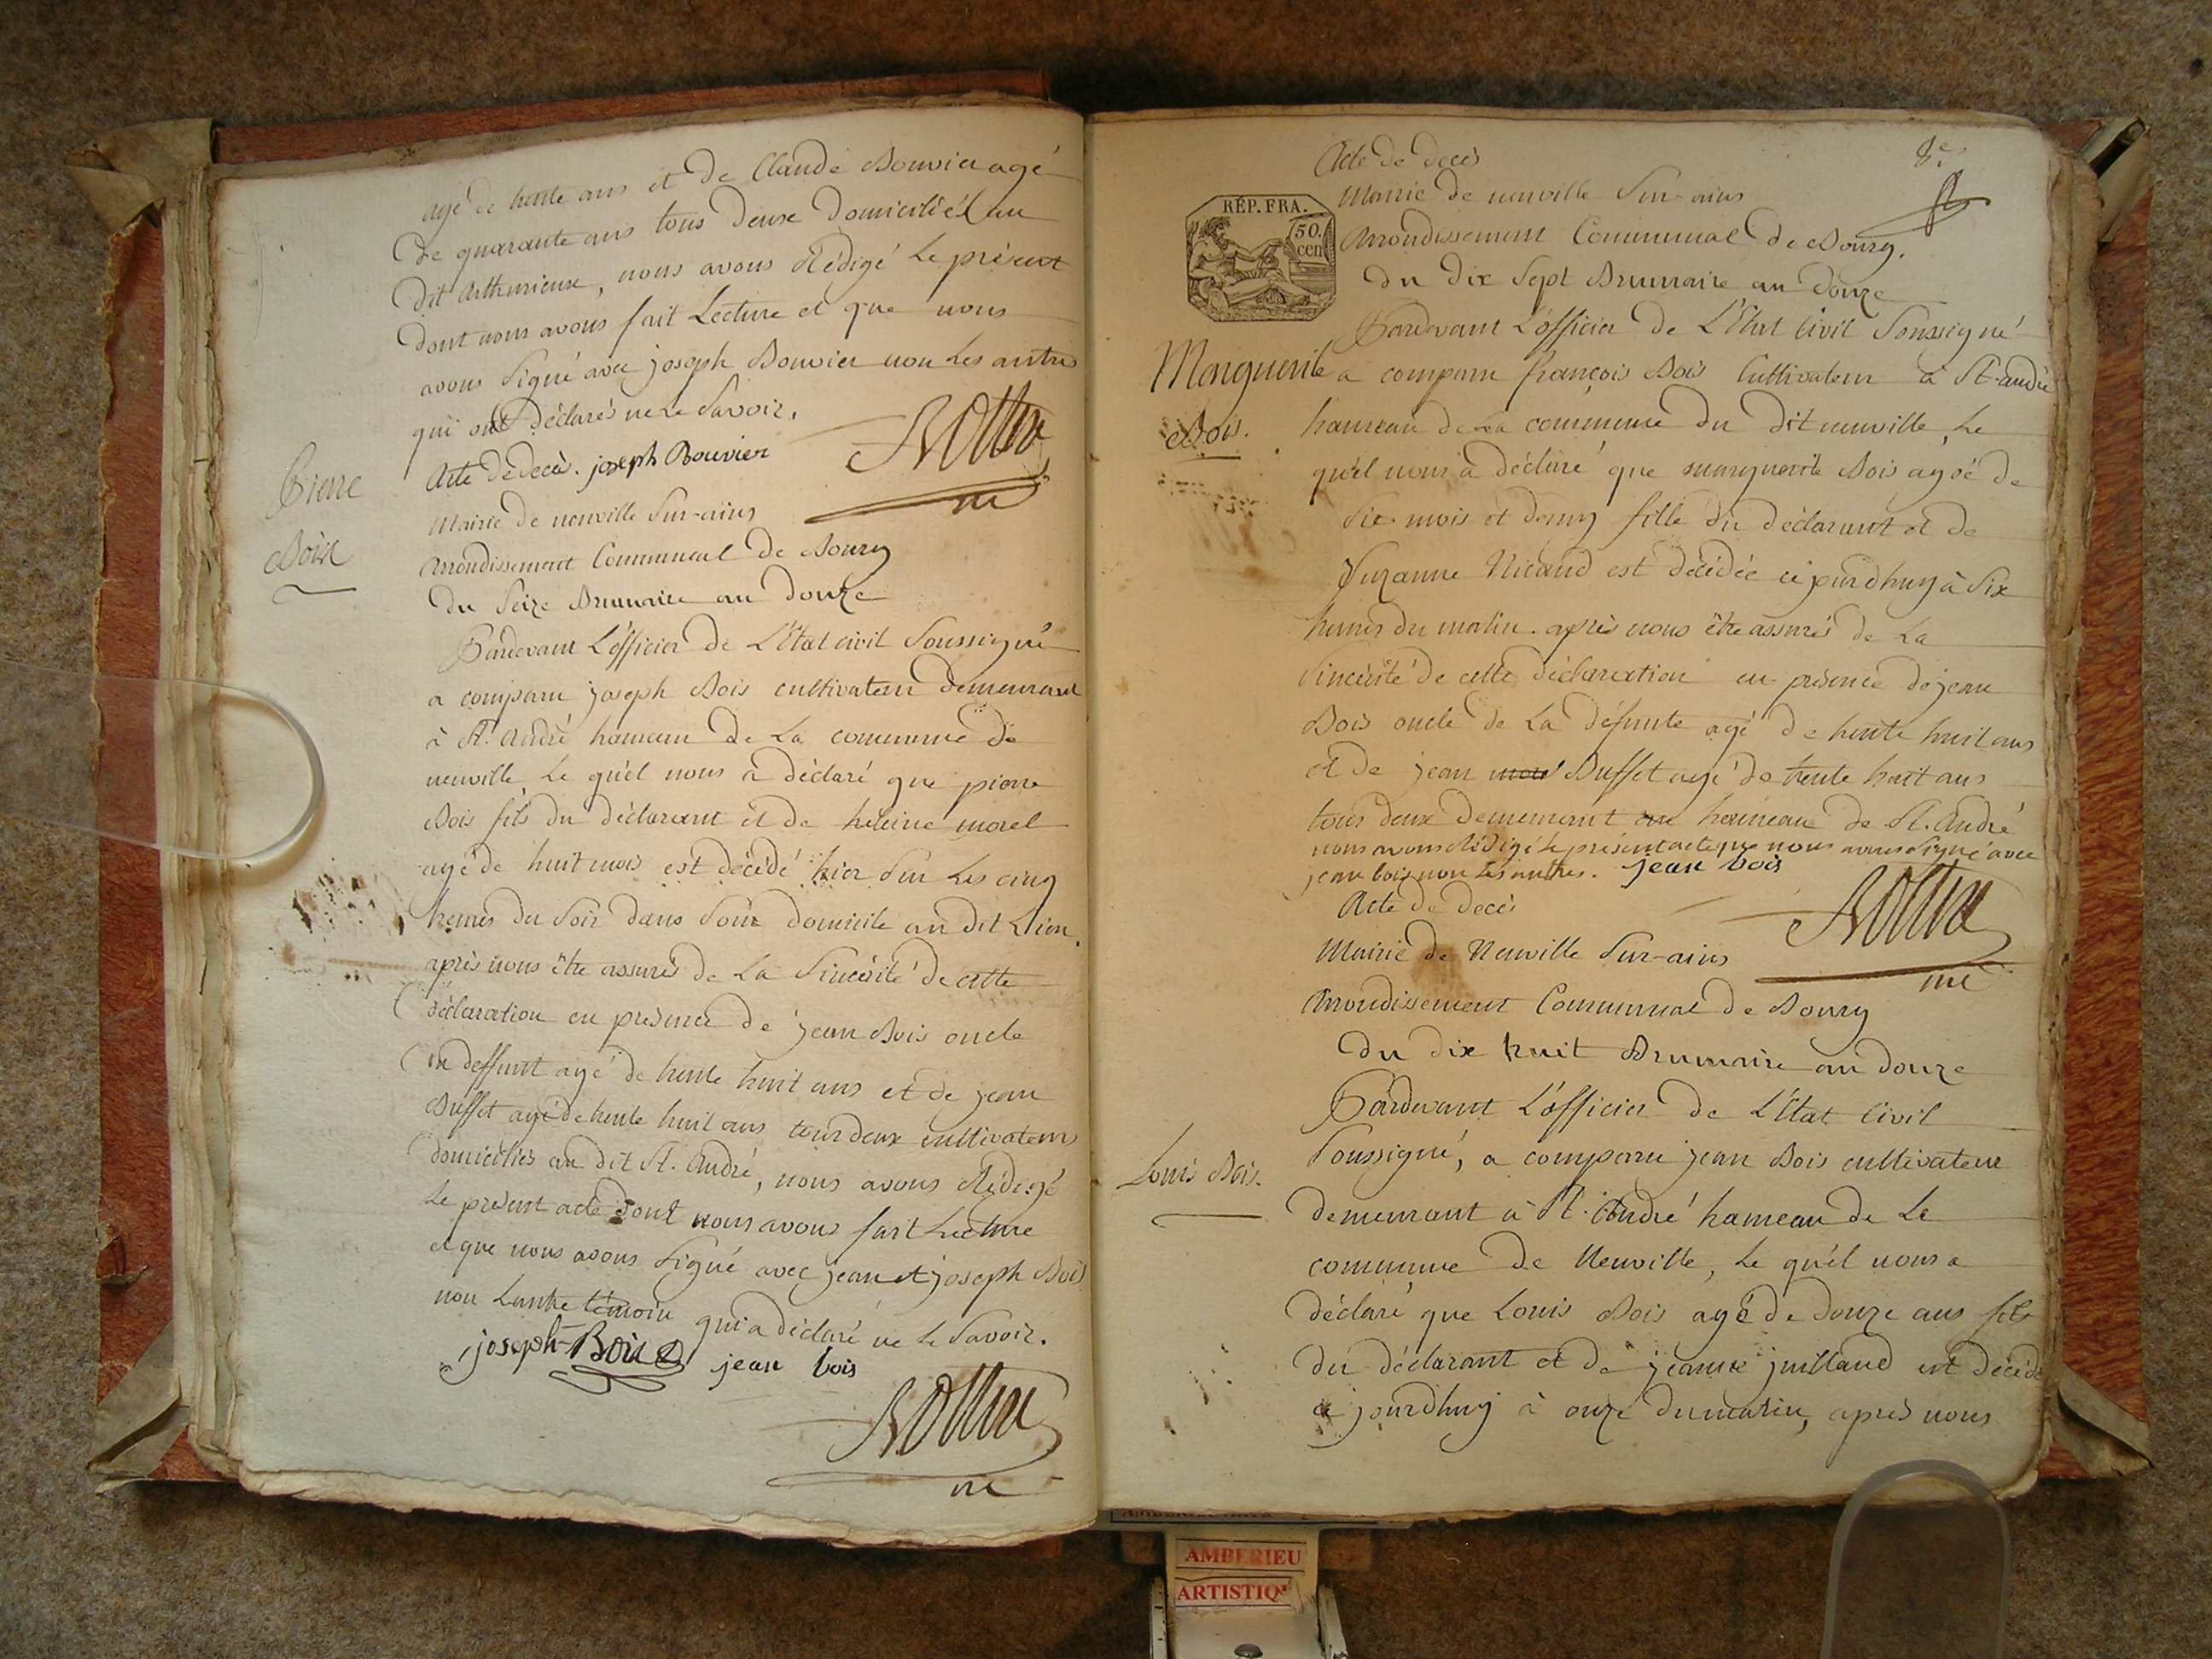 agé de trente ans et de Claude Bouvier agé
de quarante ans tous deux domiciliés au
dit Arthurieux, nous avons Rédigé Le présent
dont nous avons fait Lecture et que nous
avons Signé avec joseph Bouvier non Les autres
qui ont déclarés ne Le Savoir.
Acte de decès. joseph Bouvier
Pierre
Bois
Mairie de neuville Sur-ains
Arrondissement Communal de Bourg
du Seize Brumaire an douze
Pardevant L'officier de L'Etat civil Soussigné
a comparu joseph Bois cultivateur demeurant
à St. André hameau de La commune de
neuville, Le quél nous a déclaré que pierre
Bois fils du déclarant et de heleine morel
agé de huit mois est décédé hier Sur Les cinq
heures du Soir dans Son domicile au dit Lieu.
après nous être assurés de La Sincérité de cette
déclaration en présence de jean Bois oncle
du deffunt agé de trente huit ans et de jean
Buffet agé de trente huit ans tous deux cultivateurs
domiciliés au dit St. André, nous avons Rédigé
Le présent acte dont nous avons fait Lecture
et que nous avons Signé avec jean et joseph Bois
non Lautre témoin qui a déclaré ne le Savoir.
joseph Bois jean bois
Acte de decès
Mairie de neuville Sur-ains
RÉP. FRA.
50.
cen
Arrondissement Communal de Bourg.
du dix Sept Brumaire an douze
Pardevant L'officier de L'Etat Civil Soussigné
Marguerite
Bois.
a comparu françois Bois Cultivateur à St-andré
hameau de La commune du dit neuville, Le
quél nous a déclaré que marguerite Bois agée de
Six mois et demy fille du déclarant et de
Suzanne Nicaud est décédée ce jourdhuy à Six
heures du matin. après nous être assurés de La
Sincérité de cette déclaration en présence de jean
Bois oncle de La défunte agé de trente huit ans
et de jean Buffet agé de trente huit ans
tous deux demeurant au hameau de St. André
nous avons Rédigé le présent acte que nous avons Signé avec
jean bois non Les autres. jean bois
Acte de decès
Mairie de Neuville Sur-ains
Arrondissement Communal de Bourg
du dix huit Brumaire an douze
Pardevant L'officier de L'Etat Civil
Louis Bois.
Soussigné, a comparu jean Bois cultivateur
demeurant à St. André hameau de Le
commune de Neuville, Le quél nous a
déclaré que Louis Bois agé de douze ans fils
du déclarant et de jeanne juillard est décédé
ce jourdhuy à onze du matin, après nous
AMBERIEU
ARTISTIQ